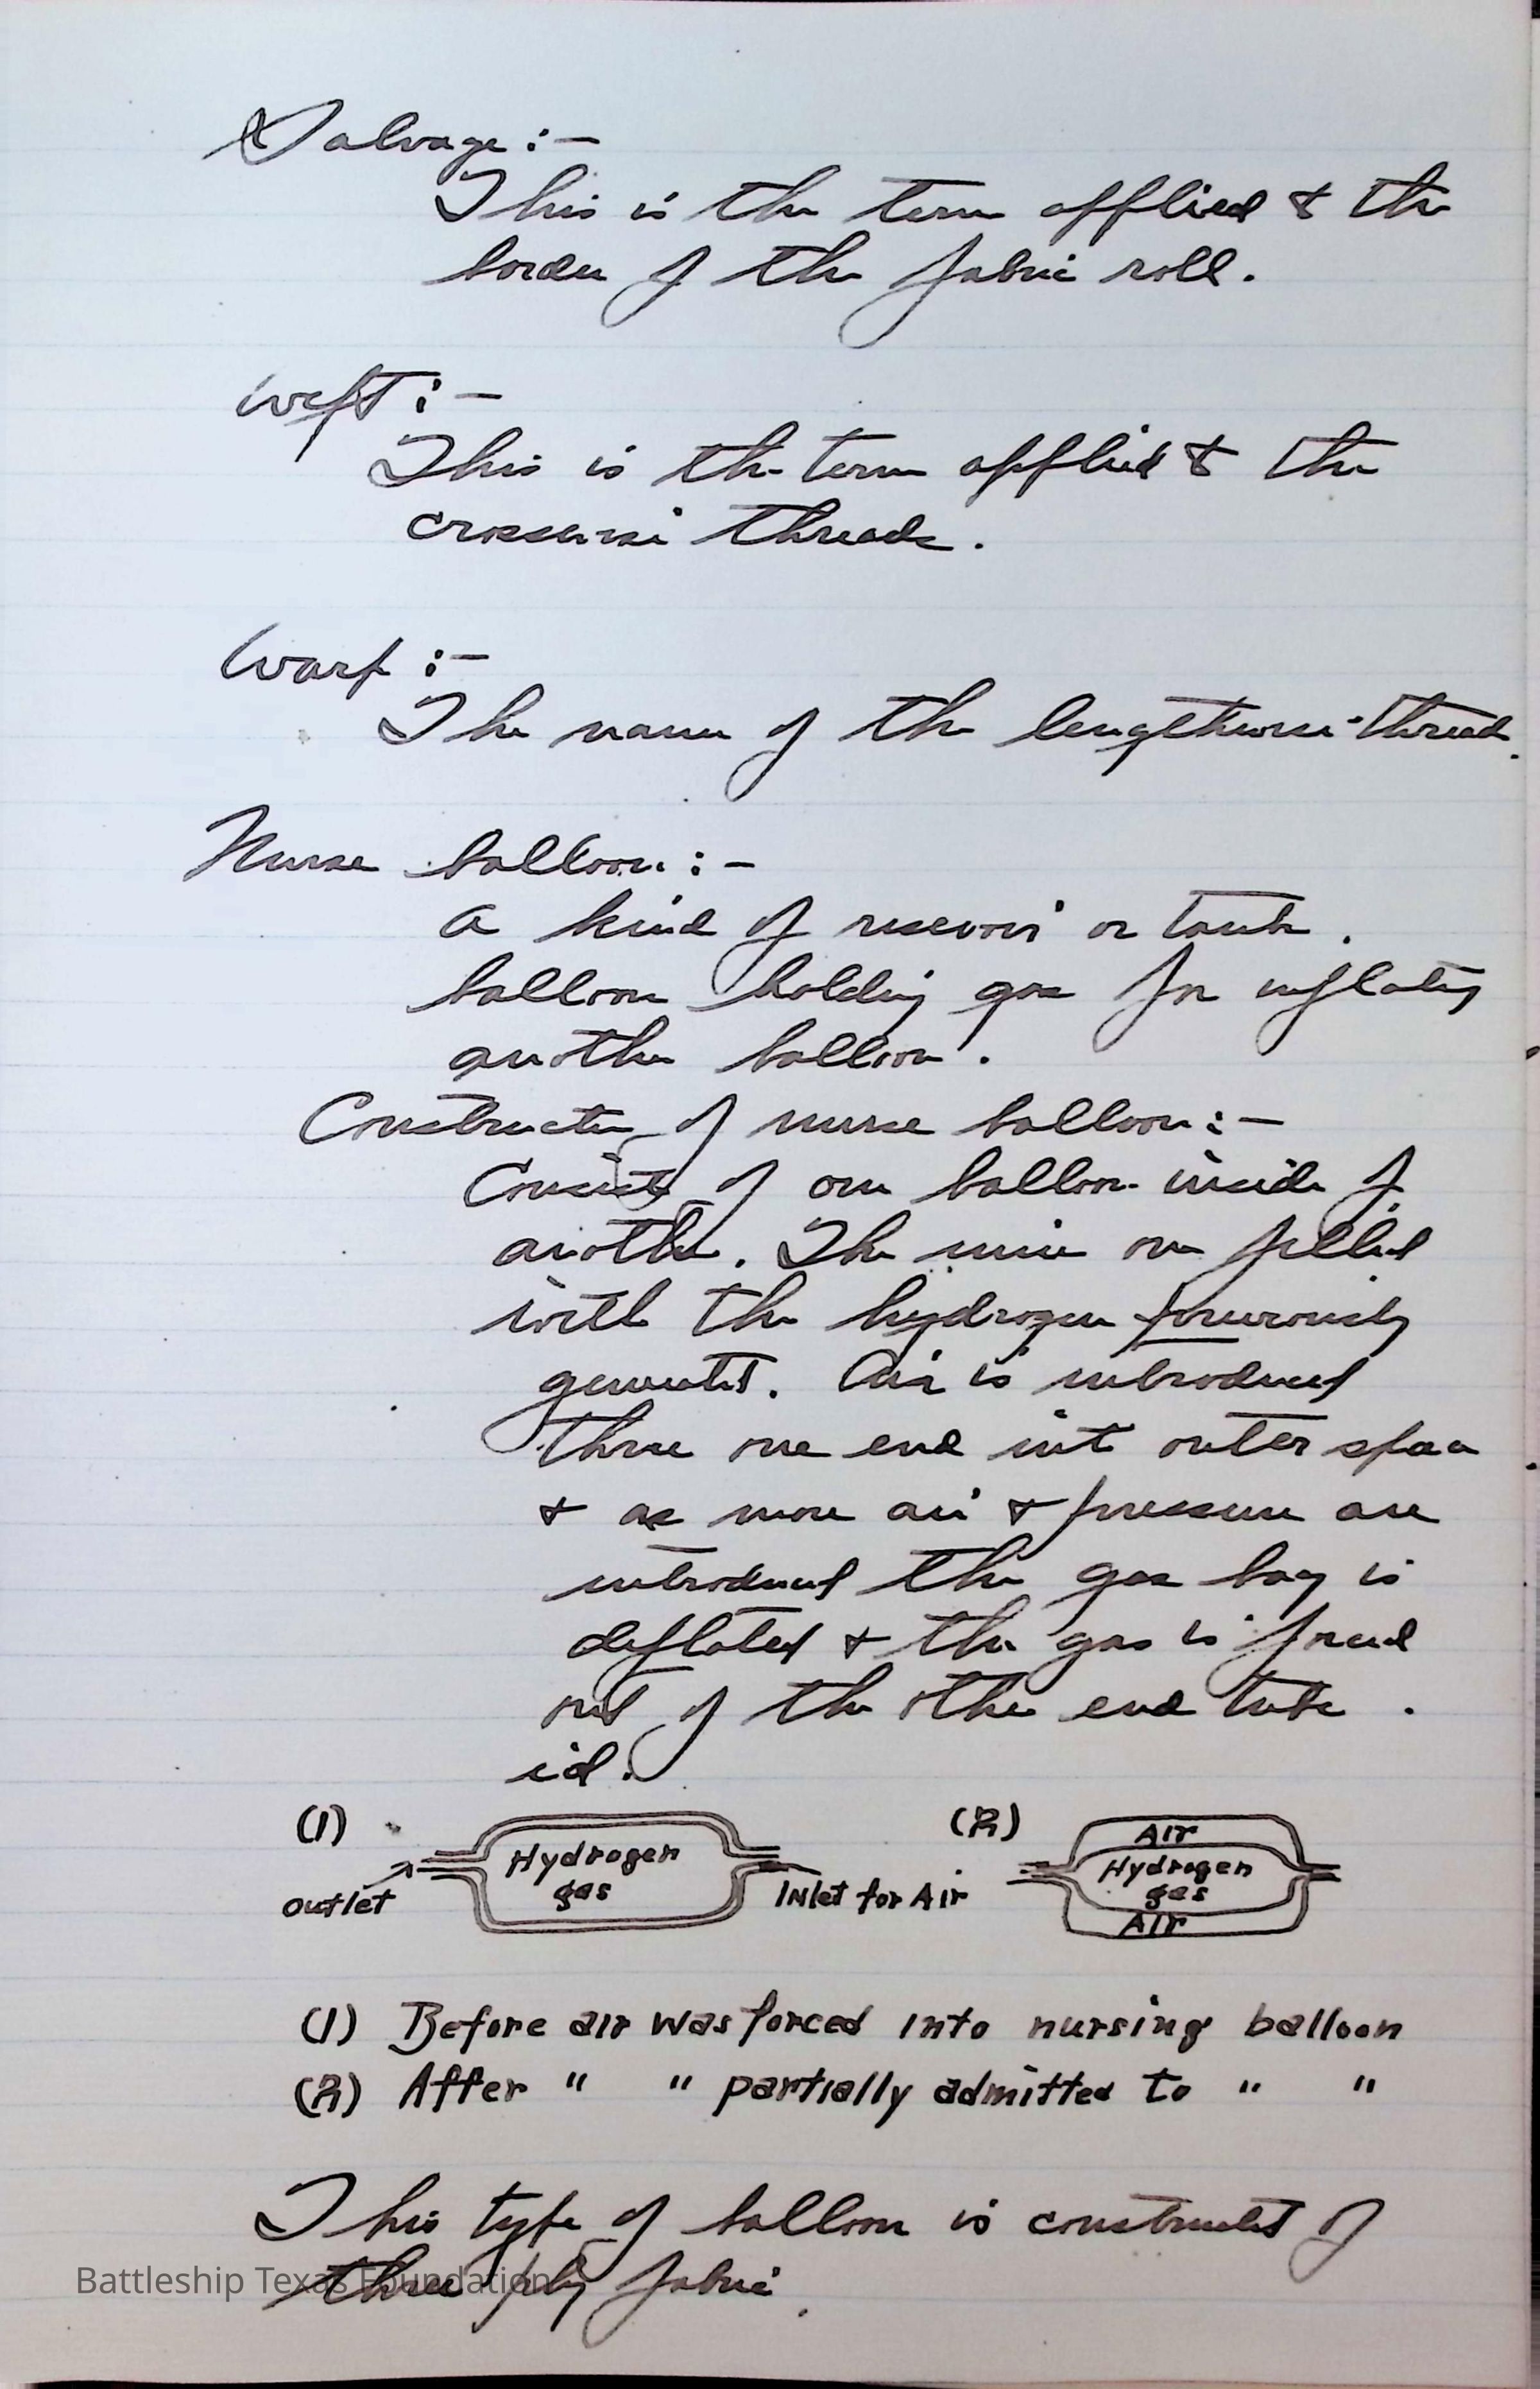 Salvage :-
This is the term applied to the
border of the fabric roll.
Weft :-
This is the term applied to the
crosswise threads.
Warp :-
The name of the lengthwise thread.
Nurse balloon :-
A kind of resevoir or tank.
balloon holding gas for inflating
another balloon.
Construction of nurse balloon :-
Consists of one balloon inside of
another. The inner one filled
with the hydrogen previously
generated. Air is introduced
thru one end into outer space
& as more air & pressure are
introduced the gas bag is
deflated & the gas is forced
out of the other end tube.
id.
(1) (2)
Hydrogen gas
Outlet
Inlet for Air
Air
Hydrogen gas
Air
(1) Before air was forced into nursing balloon
(2) After " " partially admitted to " "
This type of balloon is constructed of
three ply fabric.
Battleship Texas Foundation